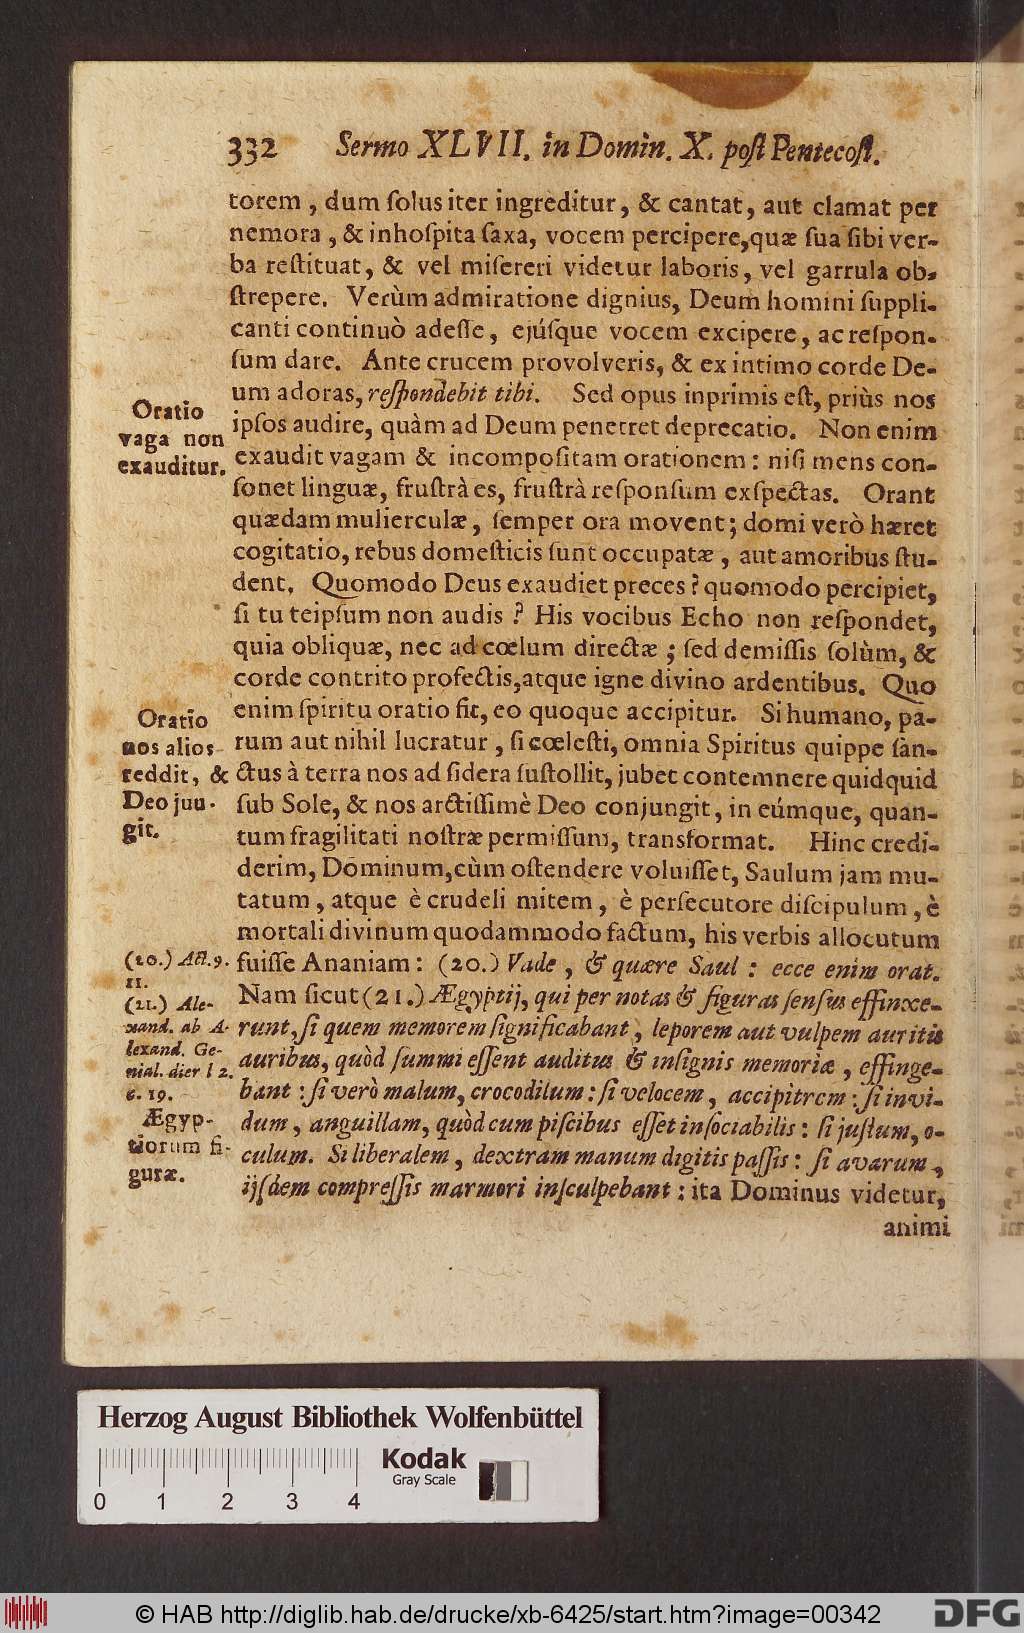 332 Sermo XLVII. in Domin. X. poſt Pentecoſt.
torem, dum ſolus iter ingreditur, & cantat, aut clamat per
nemora, & inhoſpita ſaxa, vocem percipere, quæ ſua ſibi ver-
ba reſtituat, & vel miſereri videtur laboris, vel garrula ob-
ſtrepere. Verùm admiratione dignius, Deum homini ſuppli-
canti continuò adeſſe, ejúſque vocem excipere, ac reſpon-
ſum dare. Ante crucem provolveris, & ex intimo corde De-
um adoras, reſpondebit tibi. Sed opus inprimis eſt, priùs nos
ipſos audire, quàm ad Deum penetret deprecatio. Non enim
exaudit vagam & incompoſitam orationem: niſi mens con-
ſonet linguæ, fruſtrà es, fruſtrà reſponſum exſpectas. Orant
quædam mulierculæ, ſemper ora movent; domi verò hæret
cogitatio, rebus domeſticis ſunt occupatæ, aut amoribus ſtu-
dent. Quomodo Deus exaudiet preces? quomodo percipiet,
ſi tu teipſum non audis? His vocibus Echo non reſpondet,
quia obliquæ, nec ad cœlum directæ; ſed demiſſis ſolùm, &
corde contrito profectis, atque igne divino ardentibus. Quo
enim ſpiritu oratio fit, eo quoque accipitur. Si humano, pa-
rum aut nihil lucratur, ſi cœleſti, omnia Spiritus quippe ſan-
ctus à terra nos ad ſidera ſuſtollit, jubet contemnere quidquid
ſub Sole, & nos arctiſſimè Deo conjungit, in eúmque, quan-
tum fragilitati noſtræ permiſſum, transformat. Hinc credi-
derim, Dominum, cùm oſtendere voluiſſet, Saulum jam mu-
tatum, atque è crudeli mitem, è perſecutore diſcipulum, è
mortali divinum quodammodo factum, his verbis allocutum
fuiſſe Ananiam: (20.) Vade, & quære Saul: ecce enim orat.
Nam ſicut (21.) Ægyptij, qui per notas & figuras ſenſus effinxe-
runt, ſi quem memorem ſignificabant, leporem aut vulpem auritis
auribus, quòd ſummi eſſent auditus & inſignis memoriæ, effinge-
bant: ſi verò malum, crocodilum: ſi velocem, accipitrem: ſi invi-
dum, anguillam, quòd cum piſcibus eſſet inſociabilis: ſi juſtum, o-
culum. Si liberalem, dextram manum digitis paſſis: ſi avarum,
ijſdem compreſſis marmori inſculpebant: ita Dominus videtur,
animi
Oratio
vaga non
exauditur.
Oratio
nos alios
reddit, &
Deo jun-
git.
(20.) Act. 9.
11.
(21.) Ale-
xand. ab A-
lexand. Ge-
nial. dier l 2.
c. 19.
Ægyp-
tiorum fi-
guræ.
Herzog August Bibliothek Wolfenbüttel
Kodak
Gray Scale
0 1 2 3 4
© HAB http://diglib.hab.de/drucke/xb-6425/start.htm?image=00342
DFG